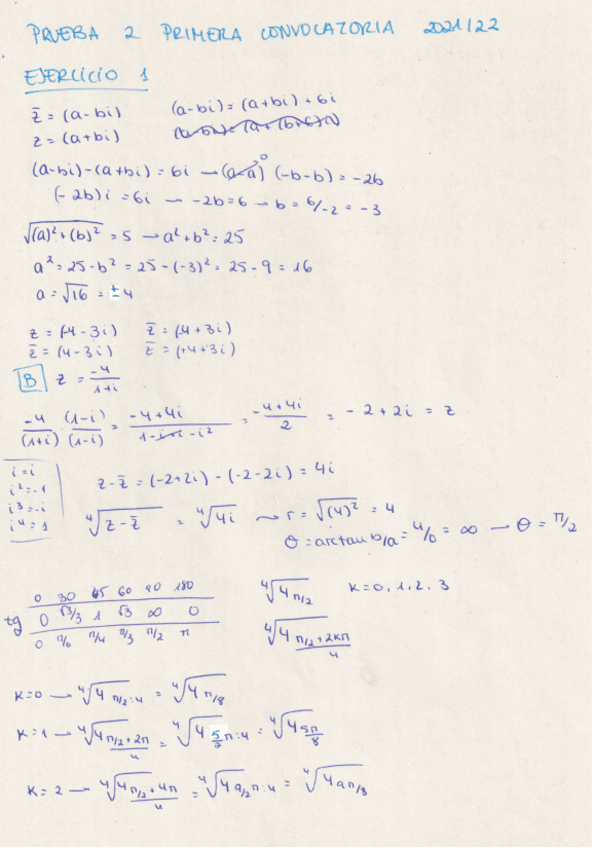 PRUEBA 2 PRIMERA CONVOCATORIA 2021/22
EJERCICIO 1
z̄ = (a-bi) (a-bi) = (a+bi) + 6i
z = (a+bi)
(a-bi)-(a+bi) = 6i → (a-a)⁰ (-b-b) = -2b
(-2b)i = 6i → -2b = 6 → b = 6/-2 = -3
√((a)²+(b)²) = 5 → a²+b² = 25
a² = 25-b² = 25-(-3)² = 25-9 = 16
a = √16 = ±4
z = (-4-3i) z̄ = (-4+3i)
z̄ = (4-3i) z̄ = (+4+3i)
B z = -4/(1+i)
-4/(1+i) (1-i)/(1-i) = (-4+4i)/(1-i+i-i²) = (-4+4i)/2 = -2+2i = z
i = i
i² = -1
i³ = -i
i⁴ = 1
z-z̄ = (-2+2i)-(-2-2i) = 4i
⁴√(z-z̄) = ⁴√(4i) → r = √((4)²) = 4
θ = arctan b/a = 4/0 = ∞ → θ = π/2
0 30 45 60 90 180
tg 0 √3/3 1 √3 ∞ 0
0 π/6 π/4 π/3 π/2 π
⁴√4 π/2 K=0,1,2,3
⁴√4 (π/2+2kπ)/4
K=0 → ⁴√4 π/2:4 = ⁴√4 π/8
K=1 → ⁴√4 (π/2+2π)/4 = ⁴√4 5/2π:4 = ⁴√4 5π/8
K=2 → ⁴√4 (π/2+4π)/4 = ⁴√4 9/2π:4 = ⁴√4 9π/8